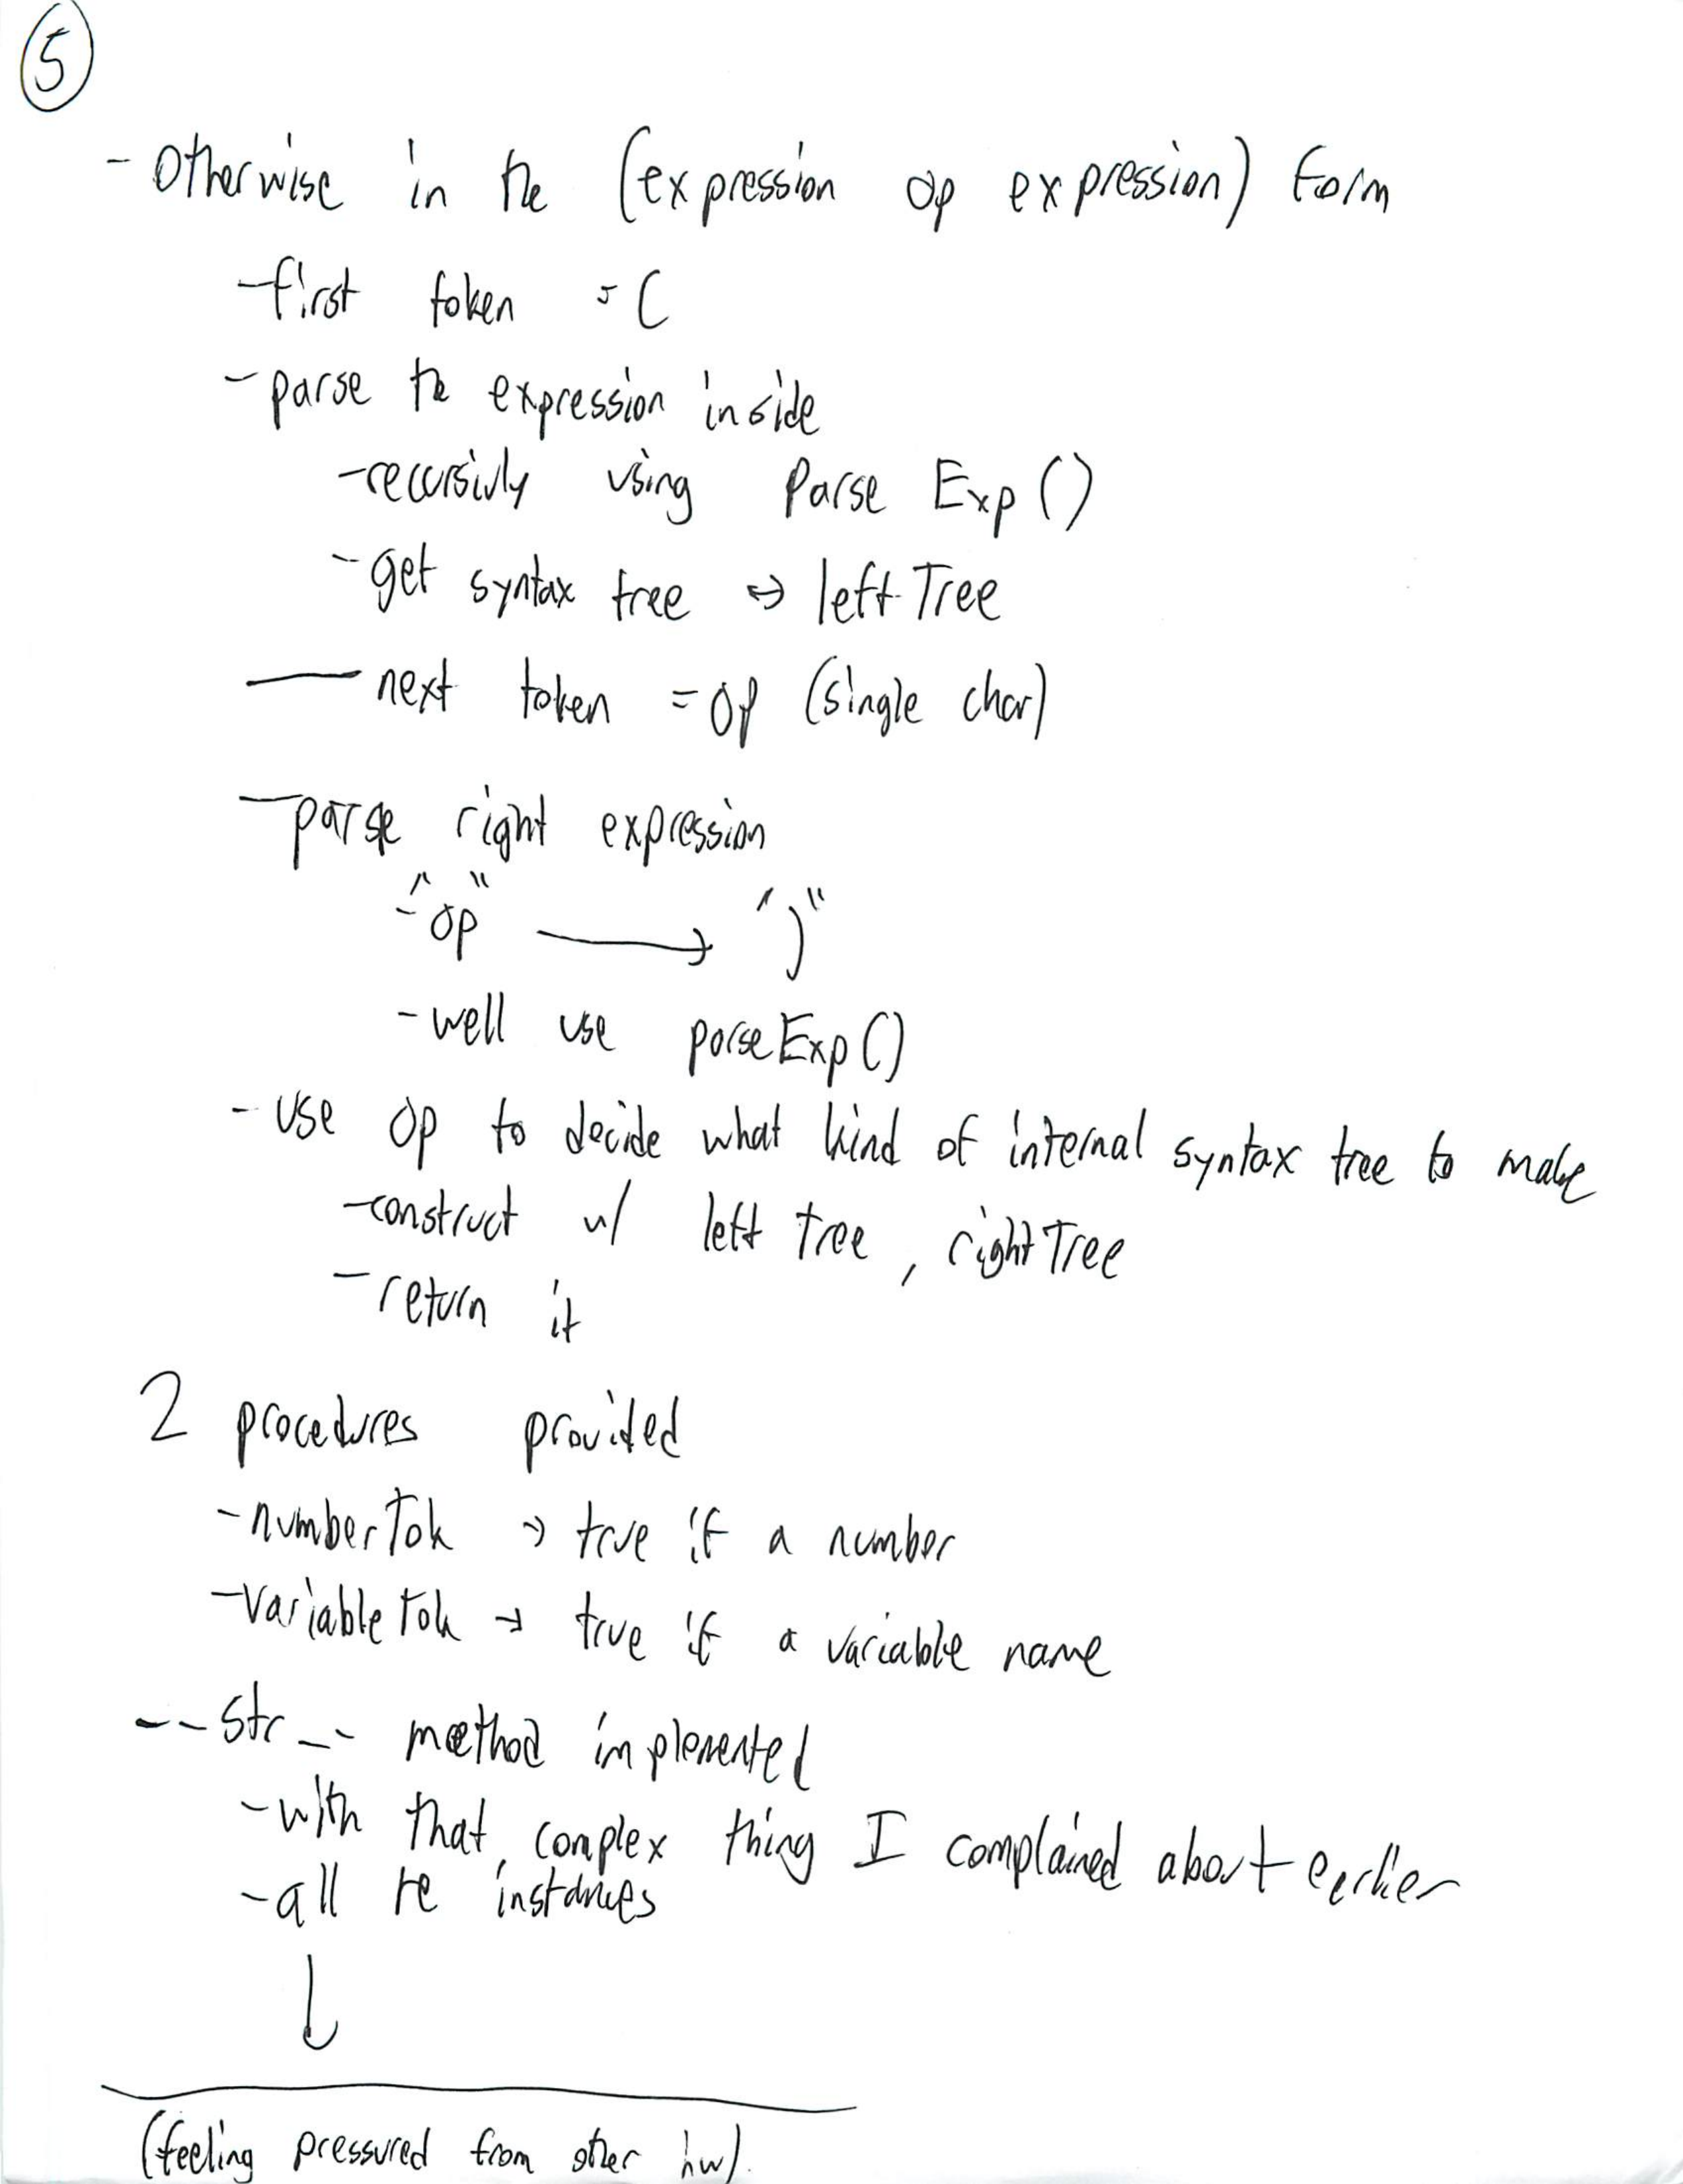 5
- Otherwise in the (expression op expression) form
- first token = (
- parse the expression inside
- recursivly using Parse Exp()
- get syntax tree → left Tree
- next token = op (single char)
- parse right expression
- "op" → ")"
- well use parseExp()
- use op to decide what kind of internal syntax tree to make
- construct w/ left tree, rightTree
- return it
2 procedures provided
- numberTok → true if a number
- variableTok → true if a variable name
__str__ method implemented
- with that complex thing I complained about earlier
- all the instances
↓
(feeling pressured from other hw).